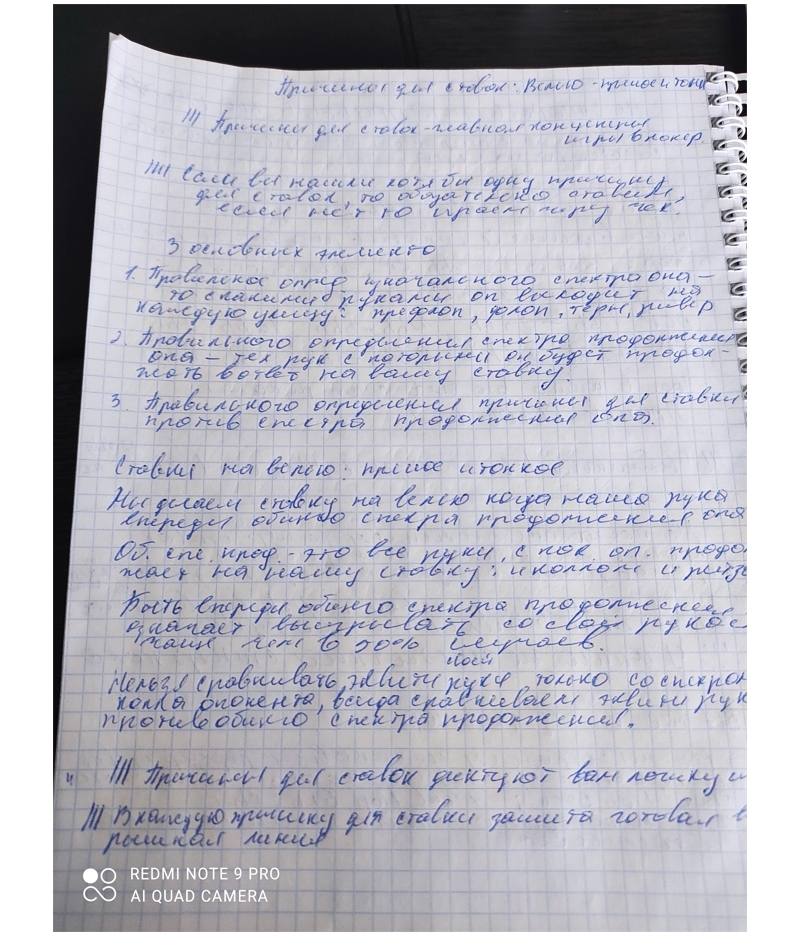 Причины для ставок: Велью -
!!! Причины для ставок - главная концепция
игры в покер
!!!! Если вы нашли хотя бы одну причину
для ставок, то обязательно ставим,
если нет то играем через чек.
3 основных элемента
1. Правильное опред. изначального спектра опа -
то с какими руками оп выходит на
каждую улицу: префлоп, флоп, терн, ривер
2. Правильного определения спектра продолжения
опа - тех рук с которыми он будет продол-
жать в ответ на вашу ставку.
3. Правильного определения причины для ставки
против спектра продолжения опа.
Ставки на велью: и тонкое
Мы делаем ставку на велью когда наша рука
впереди общего спектра продолжения опа
Об. спе. прод. - это все руки, с кок. оп. продо
жает на нашу ставку: и коллом и рейз
Быть впереди общего спектра продолжения
означает выигрывать со свой рукой
чаще чем в 50% случаев.
Нельзя сравнивать эквити своей руки только со спектром
колла опонента, всегда сравниваем эквити рук
против общего спектра продолжения.
!!! Причины для ставок диктуют вам логику и
!!! В каждую причину для ставки зашита готовая в
рышная линия
REDMI NOTE 9 PRO
AI QUAD CAMERA